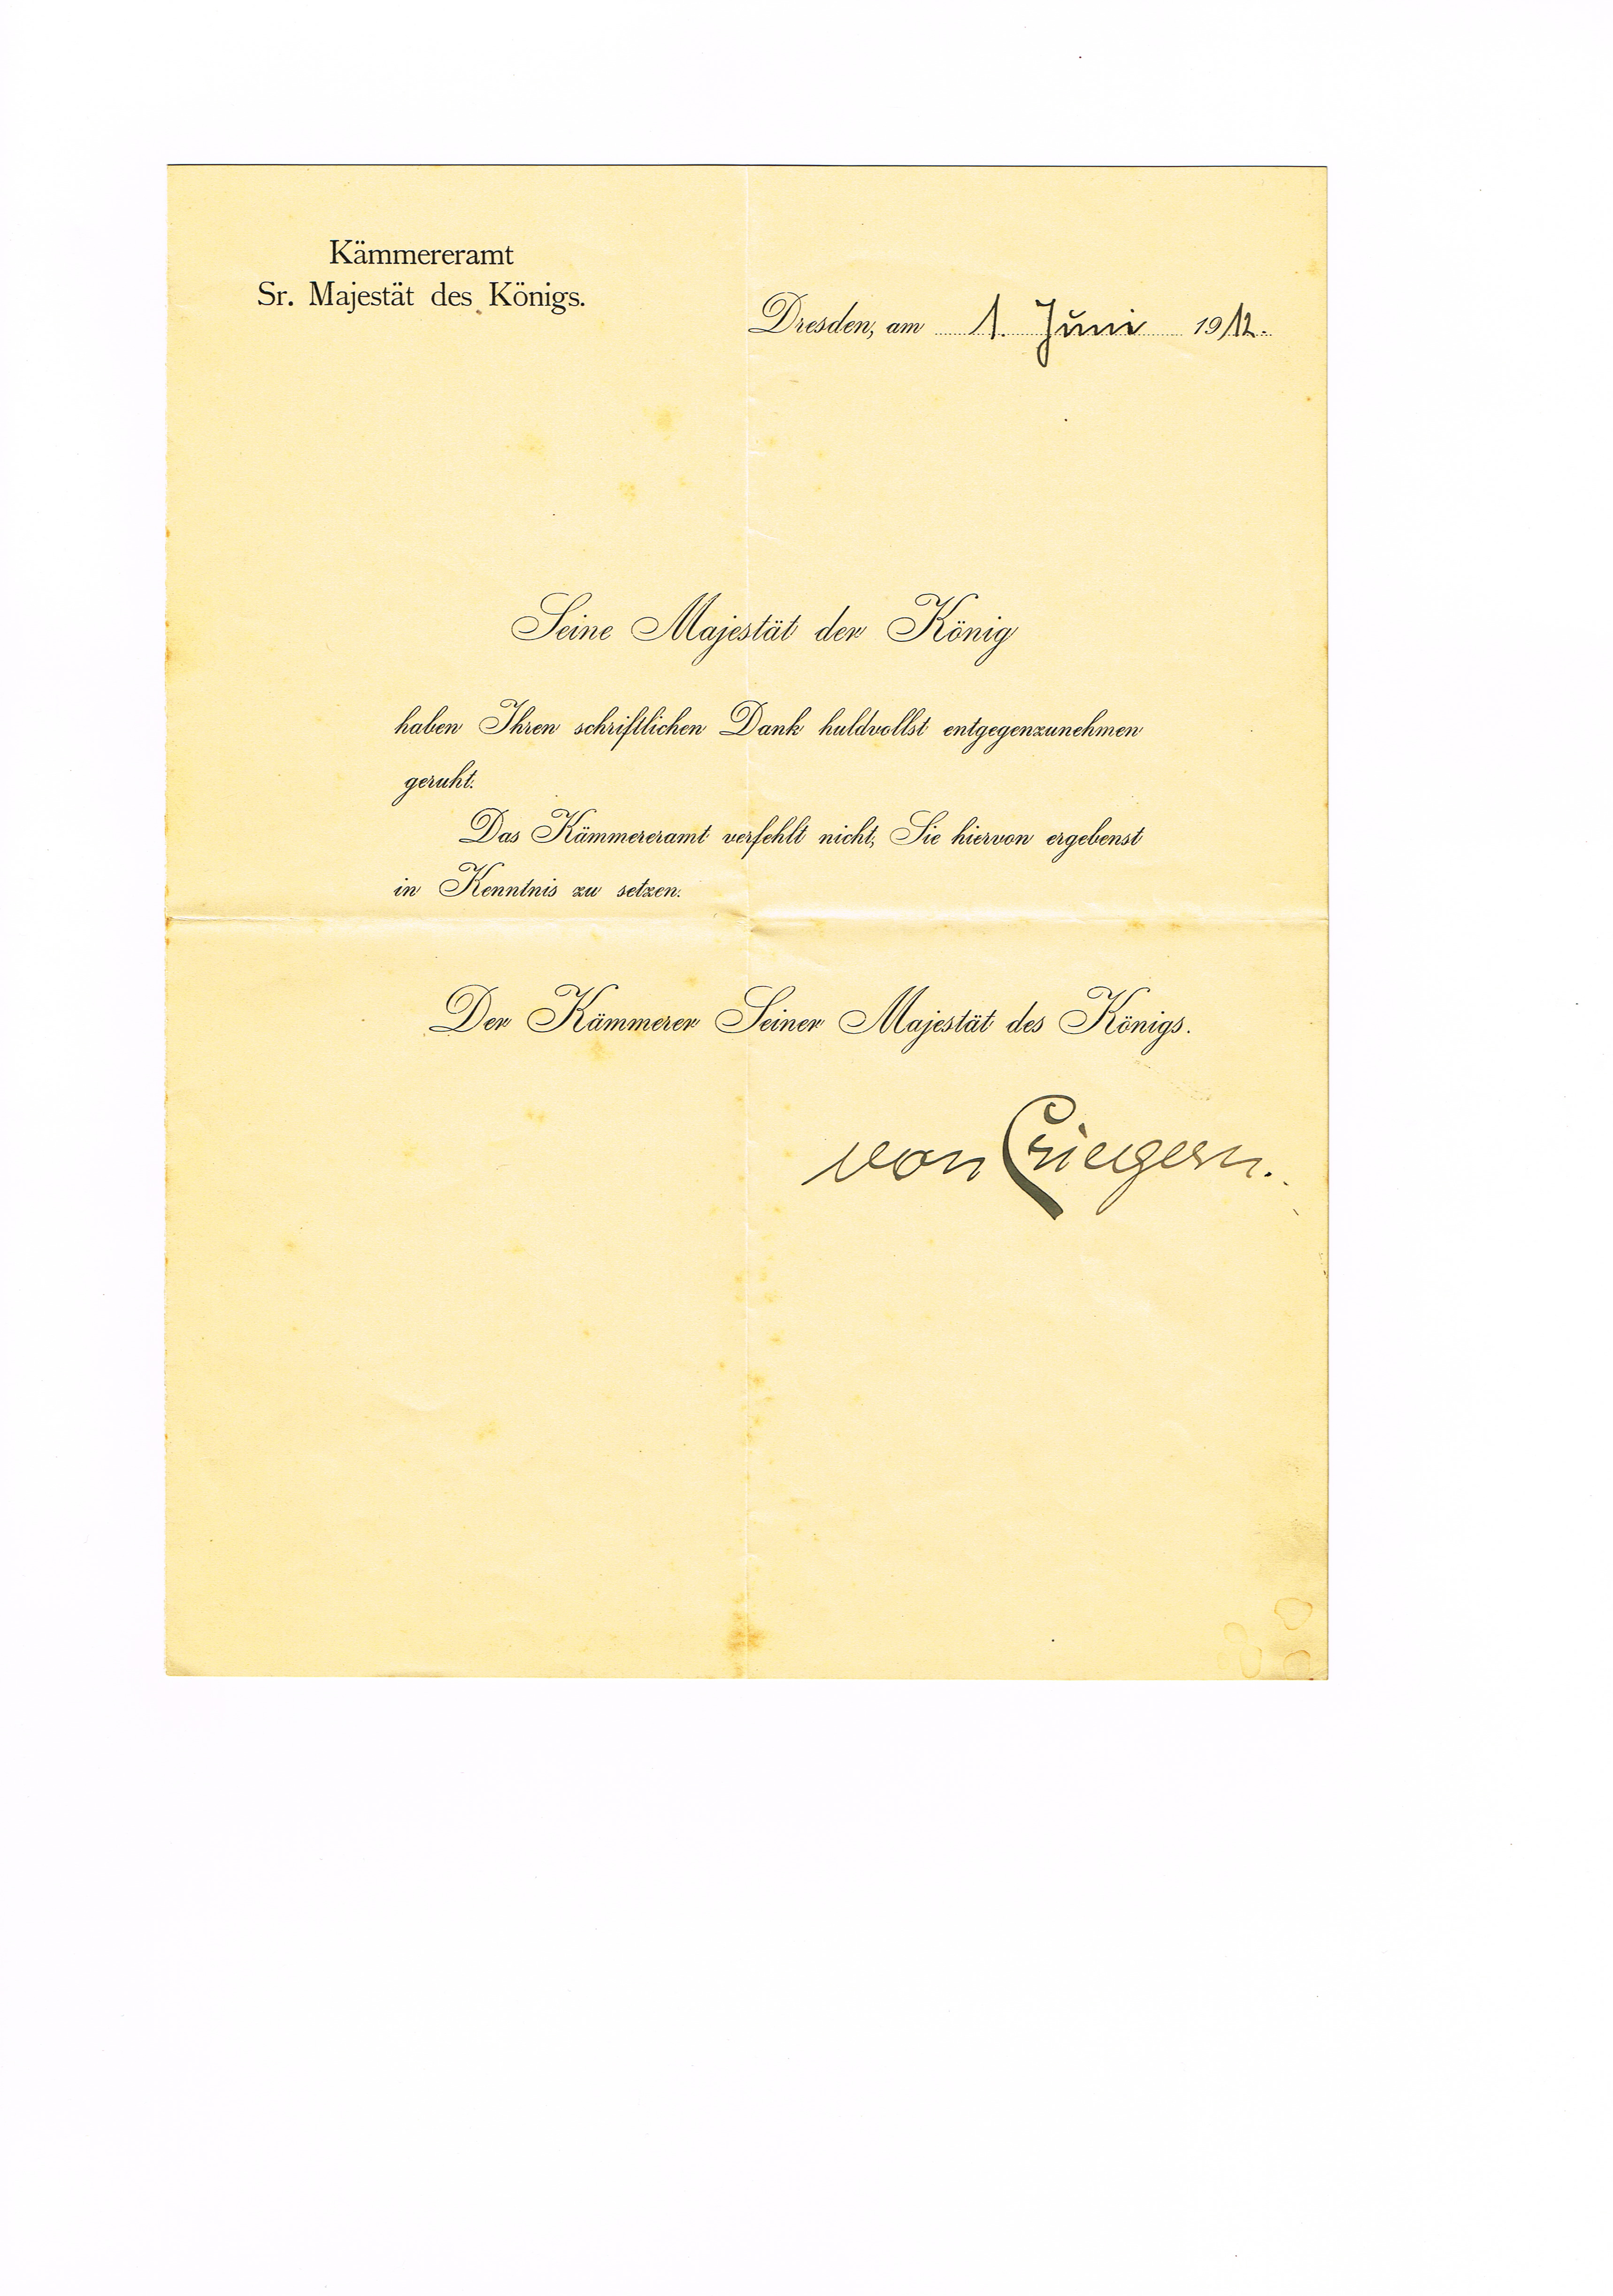 Kämmereramt
Sr. Majestät des Königs.
Dresden, am 1. Juni 1912.
Seine Majestät der König
haben Ihren schriftlichen Dank huldvollst entgegenzunehmen
geruht.
Das Kämmereramt verfehlt nicht, Sie hiervon ergebenst
in Kenntnis zu setzen.
Der Kämmerer Seiner Majestät des Königs.
von Criegern.